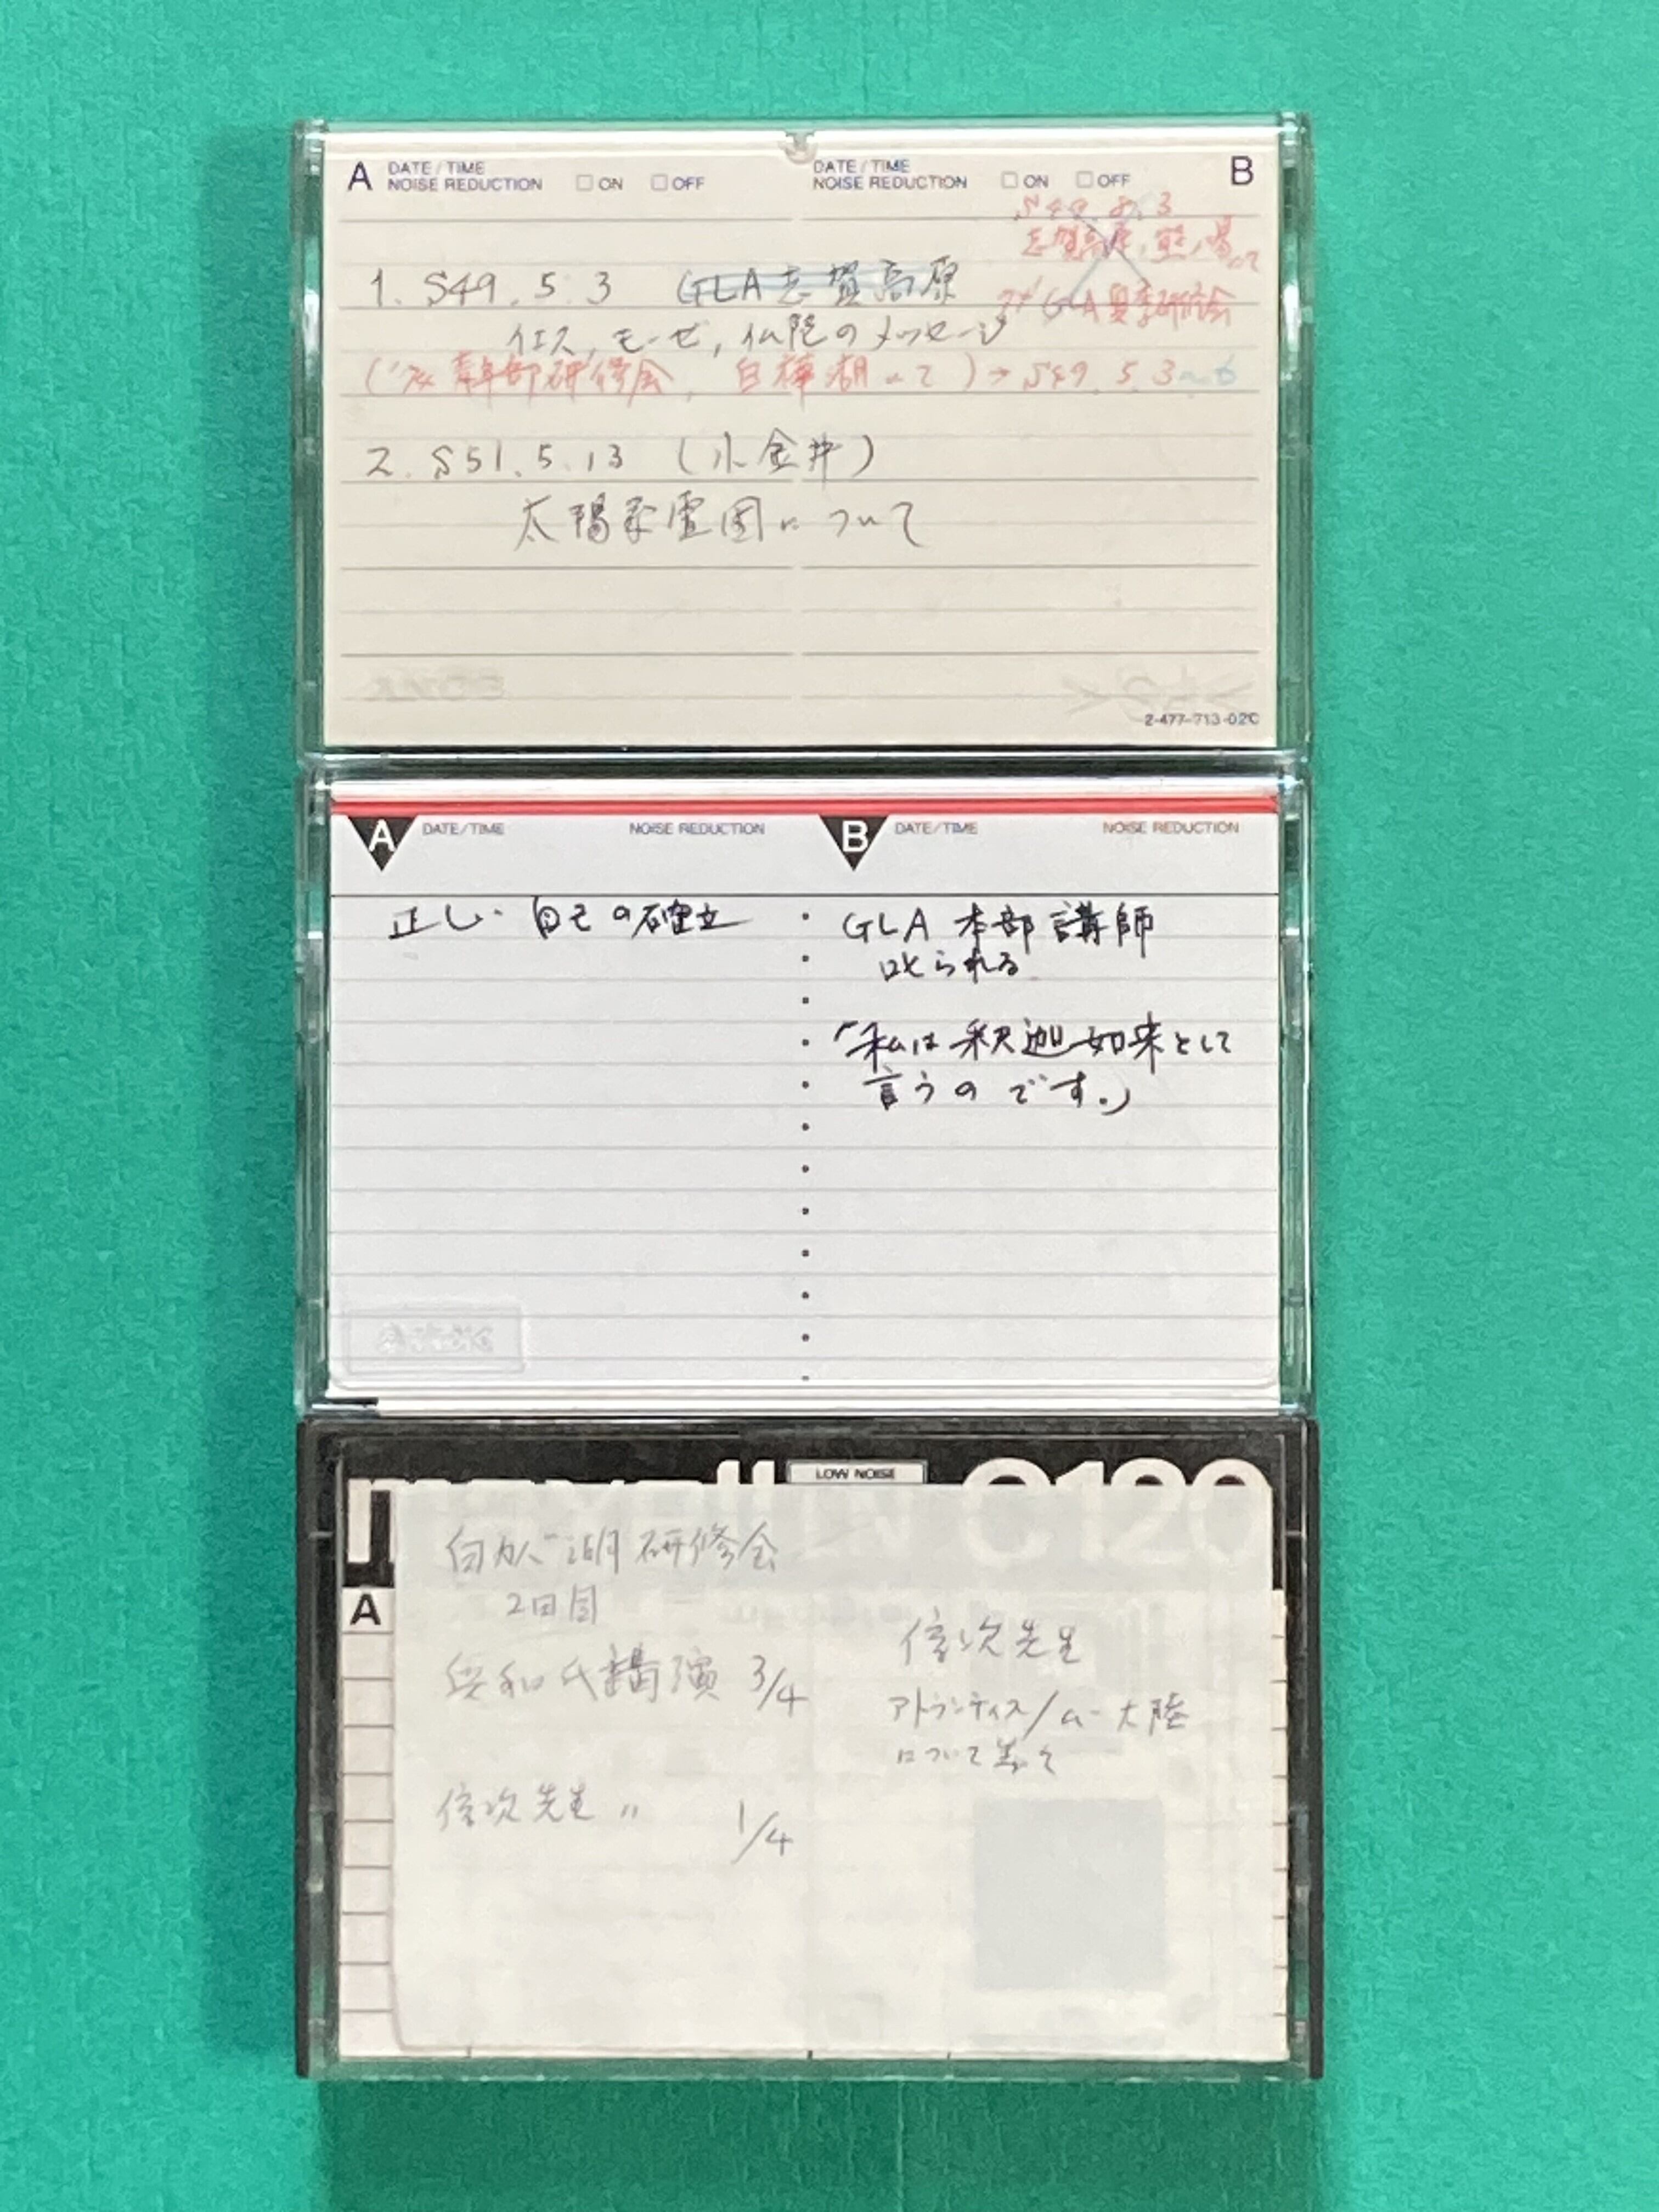 A DATE/TIME NOISE REDUCTION □ ON □ OFF
DATE/TIME NOISE REDUCTION □ ON □ OFF B
S49.8.3
志賀高原,熊ノ湯にて
'74 GLA夏季研修会
1. S49.5.3 GLA志賀高原
イエス,モーゼ,仏陀のメッセージ
('74 幹部研修会, 白樺湖にて)→S49.5.3~6
2. S51.5.13 (小金井)
太陽系霊団について
2-477-713-02C
A DATE/TIME NOISE REDUCTION
B DATE/TIME NOISE REDUCTION
正しい自己の確立
GLA 本部講師
叱られる
「私は釈迦如来として
言うのです。」
maxell LOW NOISE C120
A
白カバ湖研修会
2日目
氏講演 3/4
信次先生 〃 1/4
信次先生
アトランティス/ムー大陸
について